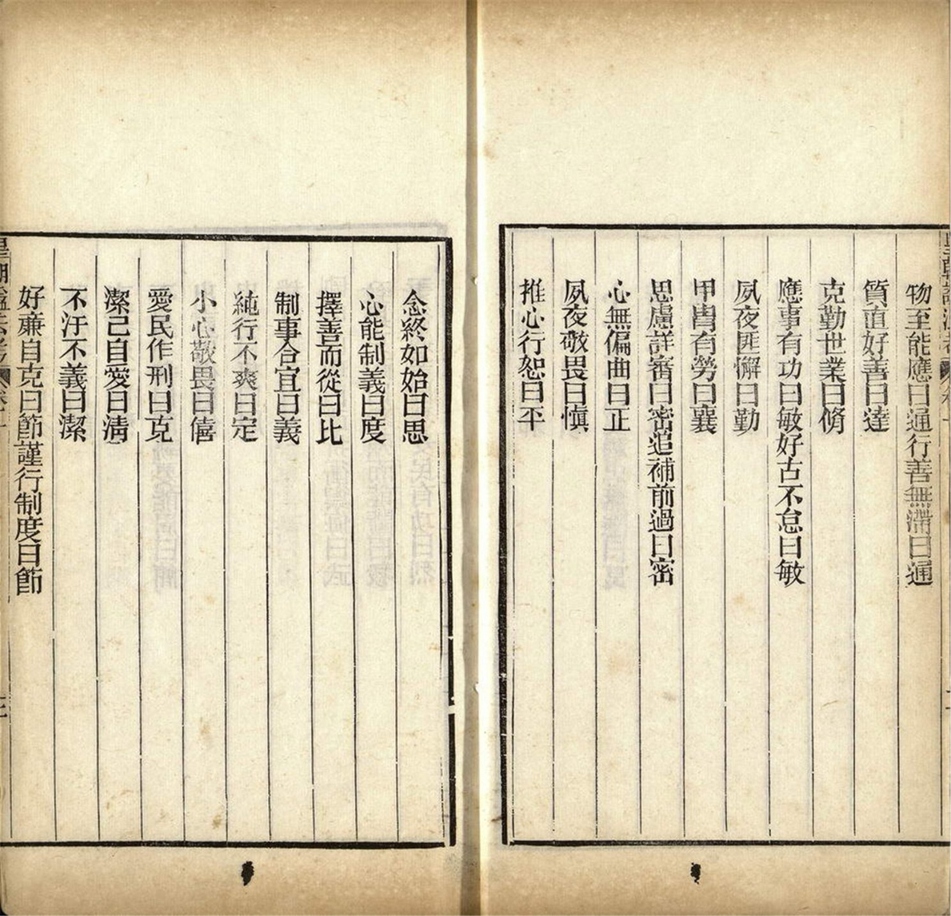 物至能應曰通行善無滯曰通
質直好善曰達
克勤世業曰脩
應事有功曰敏好古不怠曰敏
夙夜匪懈曰勤
甲冑有勞曰襄
思慮詳審曰密追補前過曰密
心無偏曲曰正
夙夜敬畏曰慎
推心行恕曰平
念終如始曰思
心能制義曰度
擇善而從曰比
制事合宜曰義
純行不爽曰定
小心敬畏曰僖
愛民作刑曰克
潔己自愛曰清
不汙不義曰潔
好亷自克曰節謹行制度曰節